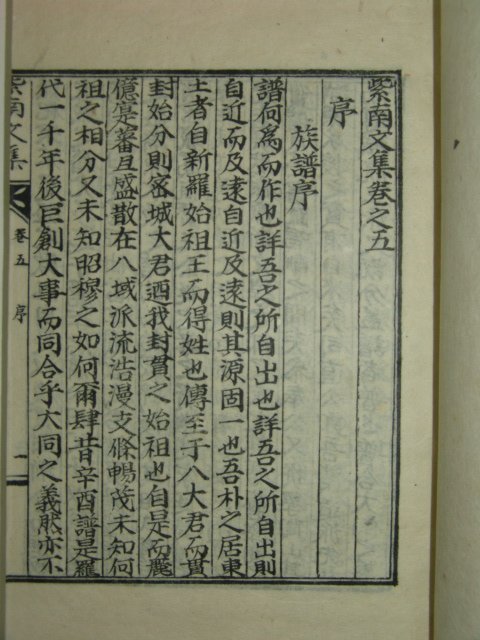 紫南文集卷之五
序
族譜序
譜何爲而作也詳吾之所自出也詳吾之所自出則
自近而及遠自近及遠則其源固一也吾朴之居東
土者自新羅始祖王而得姓也傳至于八大君而貫
封始分則密城大君迺我封貫之始祖也自是而麗
僾寔蕃且盛散在八域派流浩漫支條暢茂未知何
祖之相分又未知昭穆之如何爾肆昔辛酉譜是羅
代一千年後巨創大事而同合乎大同之義然亦不
紫南文集
卷五
序
一